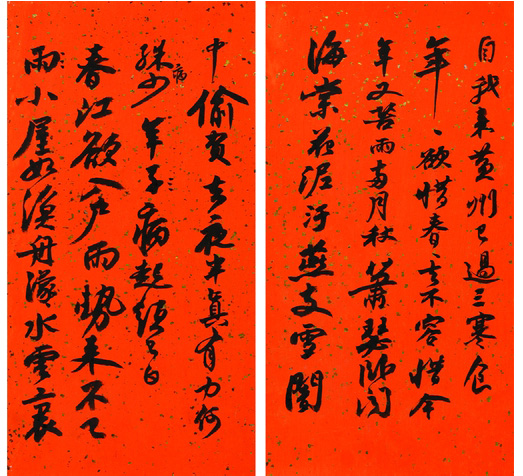 自我来黄州已過三寒食
年々欲惜春々去不容惜今
年又苦雨兩月秋蕭瑟卧聞
海棠花泥汙燕支雪闇
中偷負去夜半真有力何
殊病少年子病起頭已白
春江欲入户雨勢来不已
雨小屋如漁舟濛々水雲裏